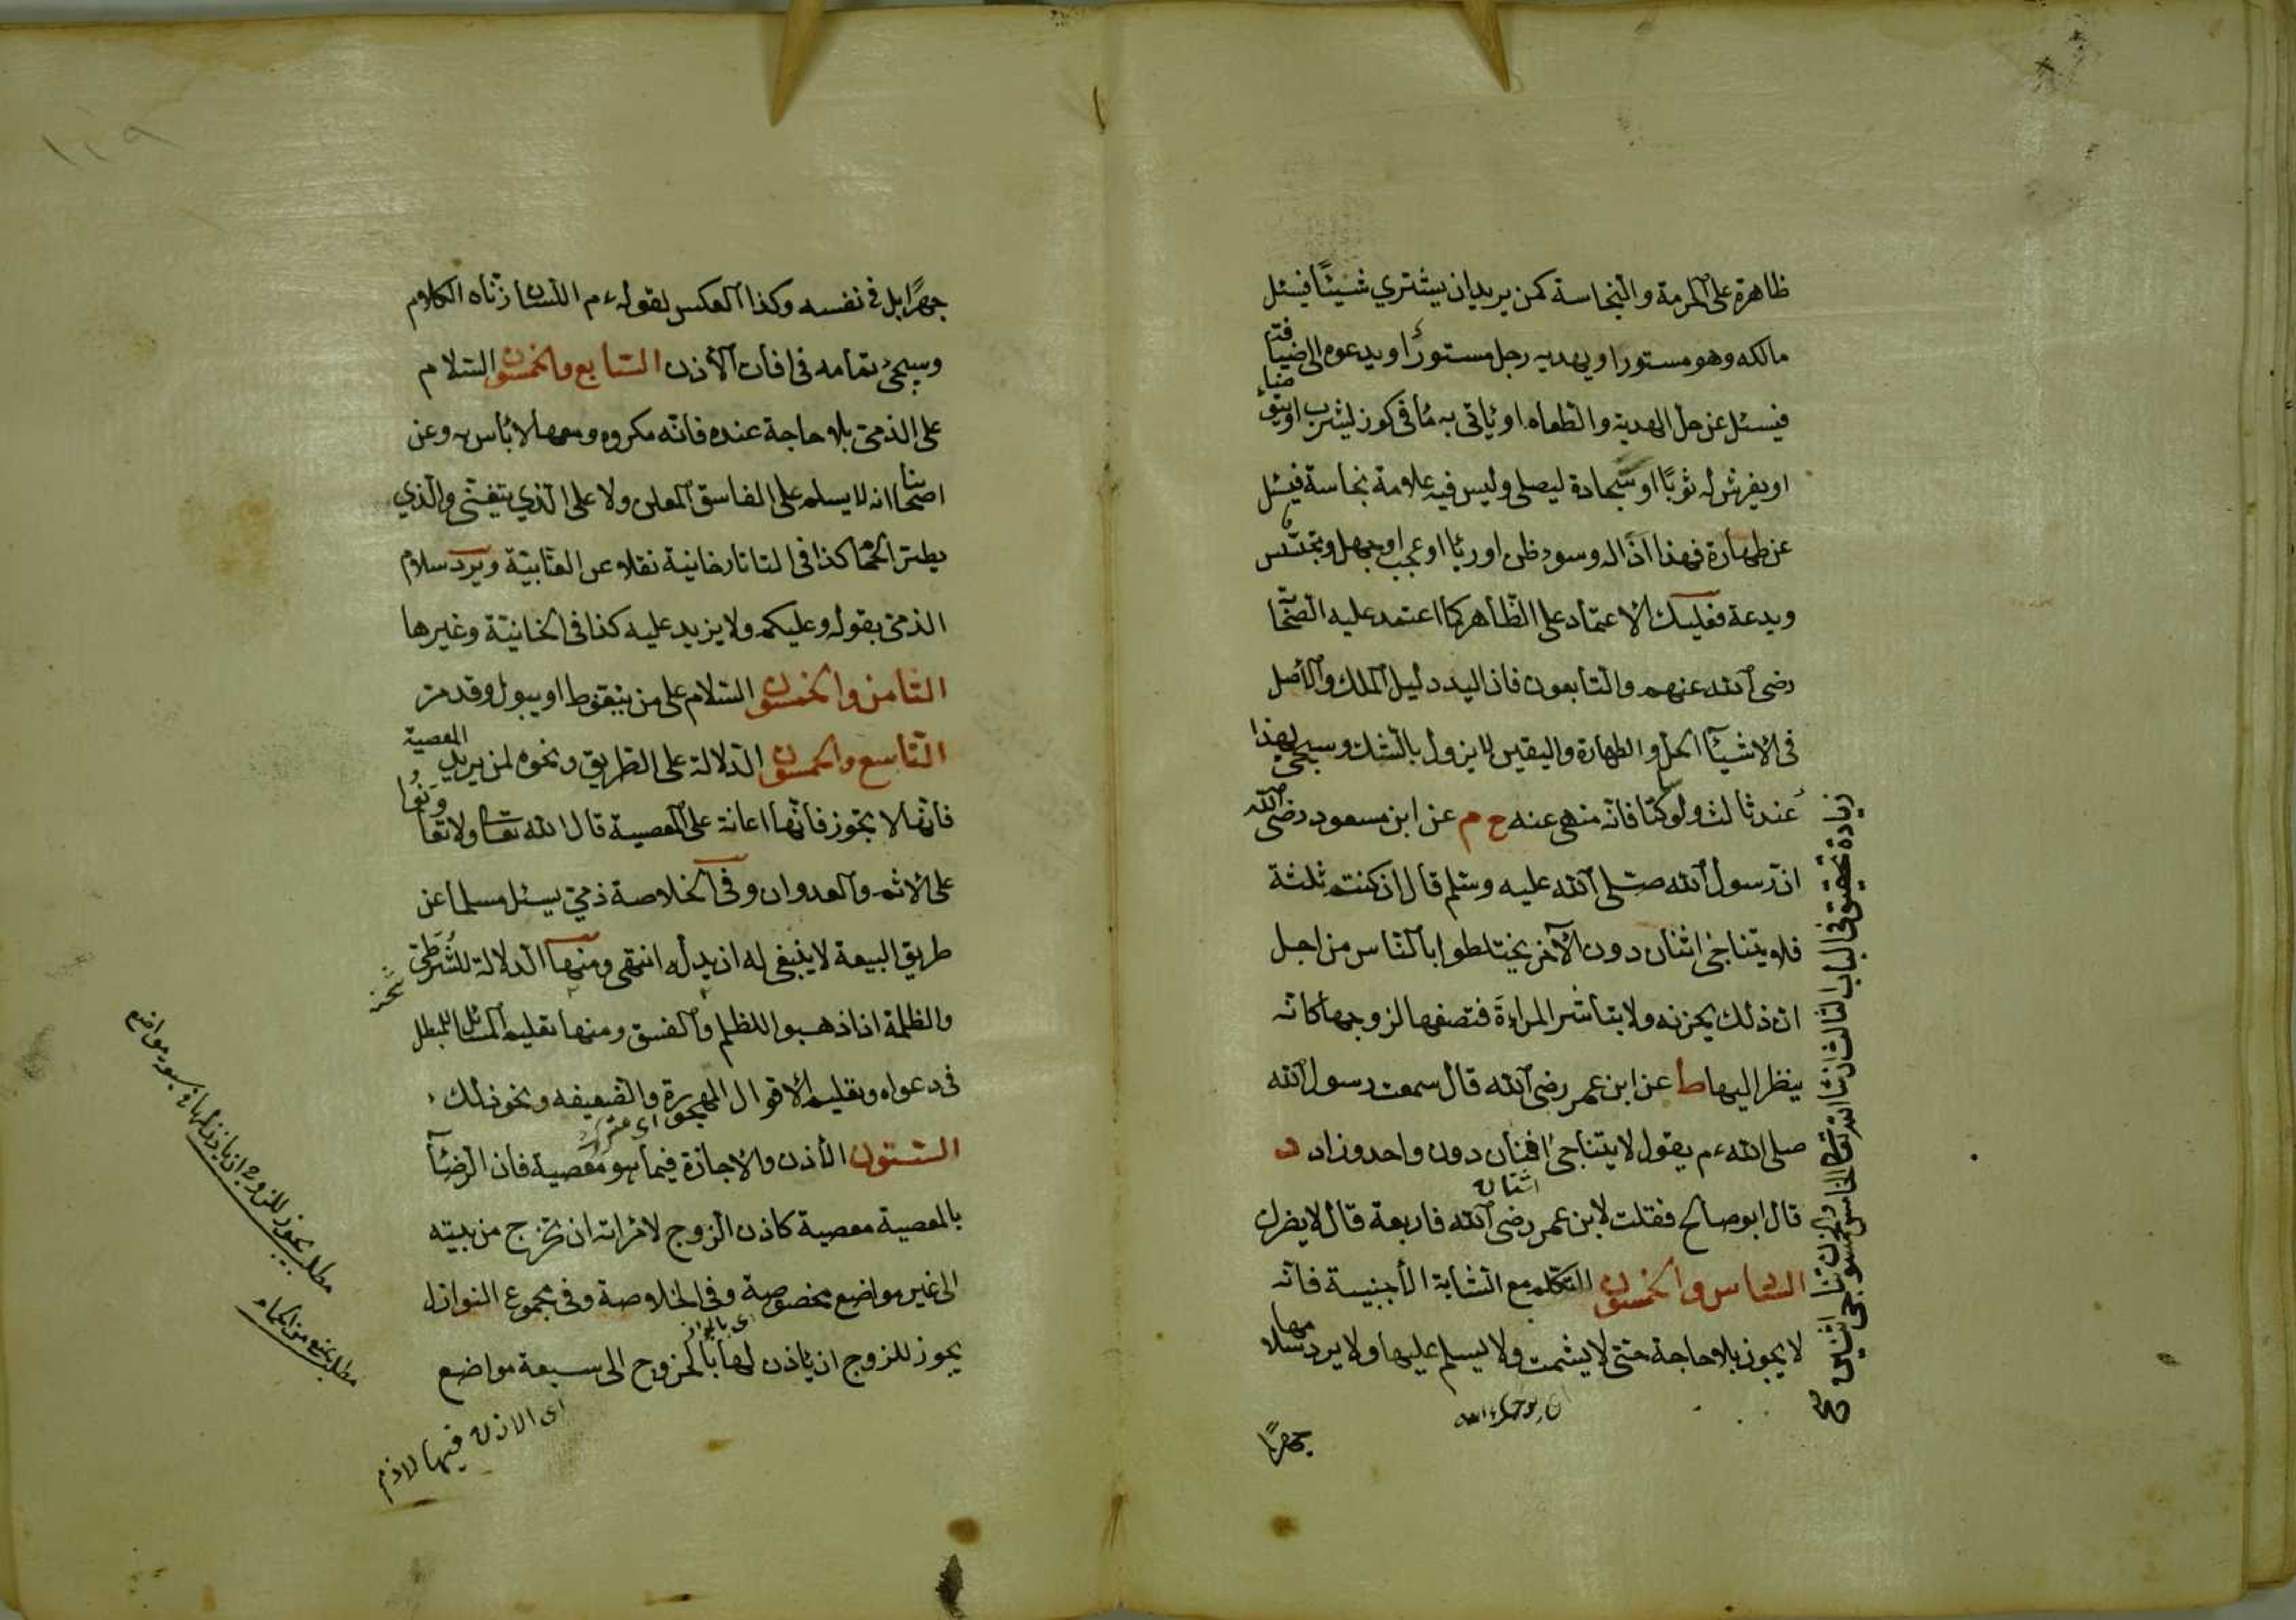 ظاهرة على الحرمة والنجاسة كمن يريد ان يشتري شيئا فيسئل
مالكه وهو مستور او يهديه رجل مستور او يدعوه الى ضيافته
فيسئل عن حل الهدية والطعام او يأتى به مأ فى كوز ليشرب او يتوضأ
او يفرش له ثوبًا او سجادة ليصلى وليس فيه علامة نجاسة فيسئل
عن طهارة فهذا اذاله وسوء ظن او ريا او عجب او جهل وتجسّس
وبدعة فعليك الاعتماد على الظاهر كما اعتمد عليه الصحا
رضى الله عنهم والتابعون فان اليد دليل الملك والأصل
فى الاشيآ الحل والطهارة واليقين لا يزول بالشك وسيجئ لهذا
زيادة تحقيق فى الباب الثالث ان شا الله تعالى الخامس والخمسون تناجى اثنين
عند ثالث فانه منهى عنه خ م عن ابن مسعود رضى الله
ان رسول الله صلى الله عليه وسلم قال ان كنتم ثلثة
فلا يتناجى اثنان دون الآخر يختلطوا بالناس من اجل
ان ذلك يحزنه ولا تباشر المرأة فتصفها لزوجها كانه
ينظر اليها ط عن ابن عمر رضى الله قال سمعت رسول الله
صلى الله ءم يقول لا يتناجى اثنان دون واحد وزاد د
اثنان
قال ابو صالح فقلت لابن عمر رضى الله فاربعة قال لا يضرك
السادس والخمسون التكلم مع الشابة الأجنبية فانه
لا يجوز بلا حاجة حتى لا يشمت ولا يسلم عليها ولا يرد سلامها
جهرًا
جهرًا بل فى نفسه وكذا العكس لقوله ءم اللسان زناه الكلام
وسيجئ تمامه فى افات الأذن السابع والخمسون السلام
على الذمى بلا حاجة عنده فانه مكروه ومعها لا بأس به وعن
اصحابنا انه لا يسلم على الفاسق المعلن ولا على الذي يتغنى والذي
يطير الحما كذا فى التاتارخانية نقلا عن العتابية ويرد سلام
الذمى بقوله وعليكم ولا يزيد عليه كذا فى الخانية وغيرها
الثامن والخمسون السلام على من يتغوط او يبول وقد مر
التاسع والخمسون الدلالة على الطريق ونحوه لمن يريد المعصية
فانها لا يجوز فانها اعانة على المعصية قال الله تعالى ولا تعاونوا
على الاثم والعدوان وفى الخلاصة ذمى يسئل مسلما عن
طريق البيعة لا ينبغى له ان يدله انتهى ومنها الدلالة للشرطى
والظلمة اذا ذهبوا للظلم والفسق ومنها تعليم المسائل للمبطل
فى دعواه وتعليم الاقوال المهجورة والضعيفه ونحو ذلك
الستون الأذن والاجازة فيما هو معصية فان الرضأ
بالمعصية معصية كاذن الزوج لامرأته ان تخرج من بيته
الى غير مواضع مخصوصة وفى الخلاصة وفى مجموع النوازل
يجوز للزوج ان يأذن لها بالخروج الى سبعة مواضع
اى الاذن فيها لازم
مطلب يجوز للزوج ان يأذن لها